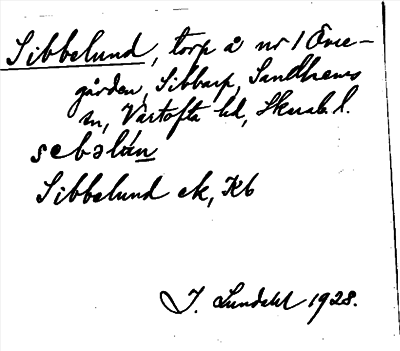 Sibbelund, torp å nr 1 Övre-
gården, Sibbarp, Sandhems
sn, Vartofta hd, Skarab. l.
sebəlún
Sibbelund ek, Kb
J. Lundahl 1928.